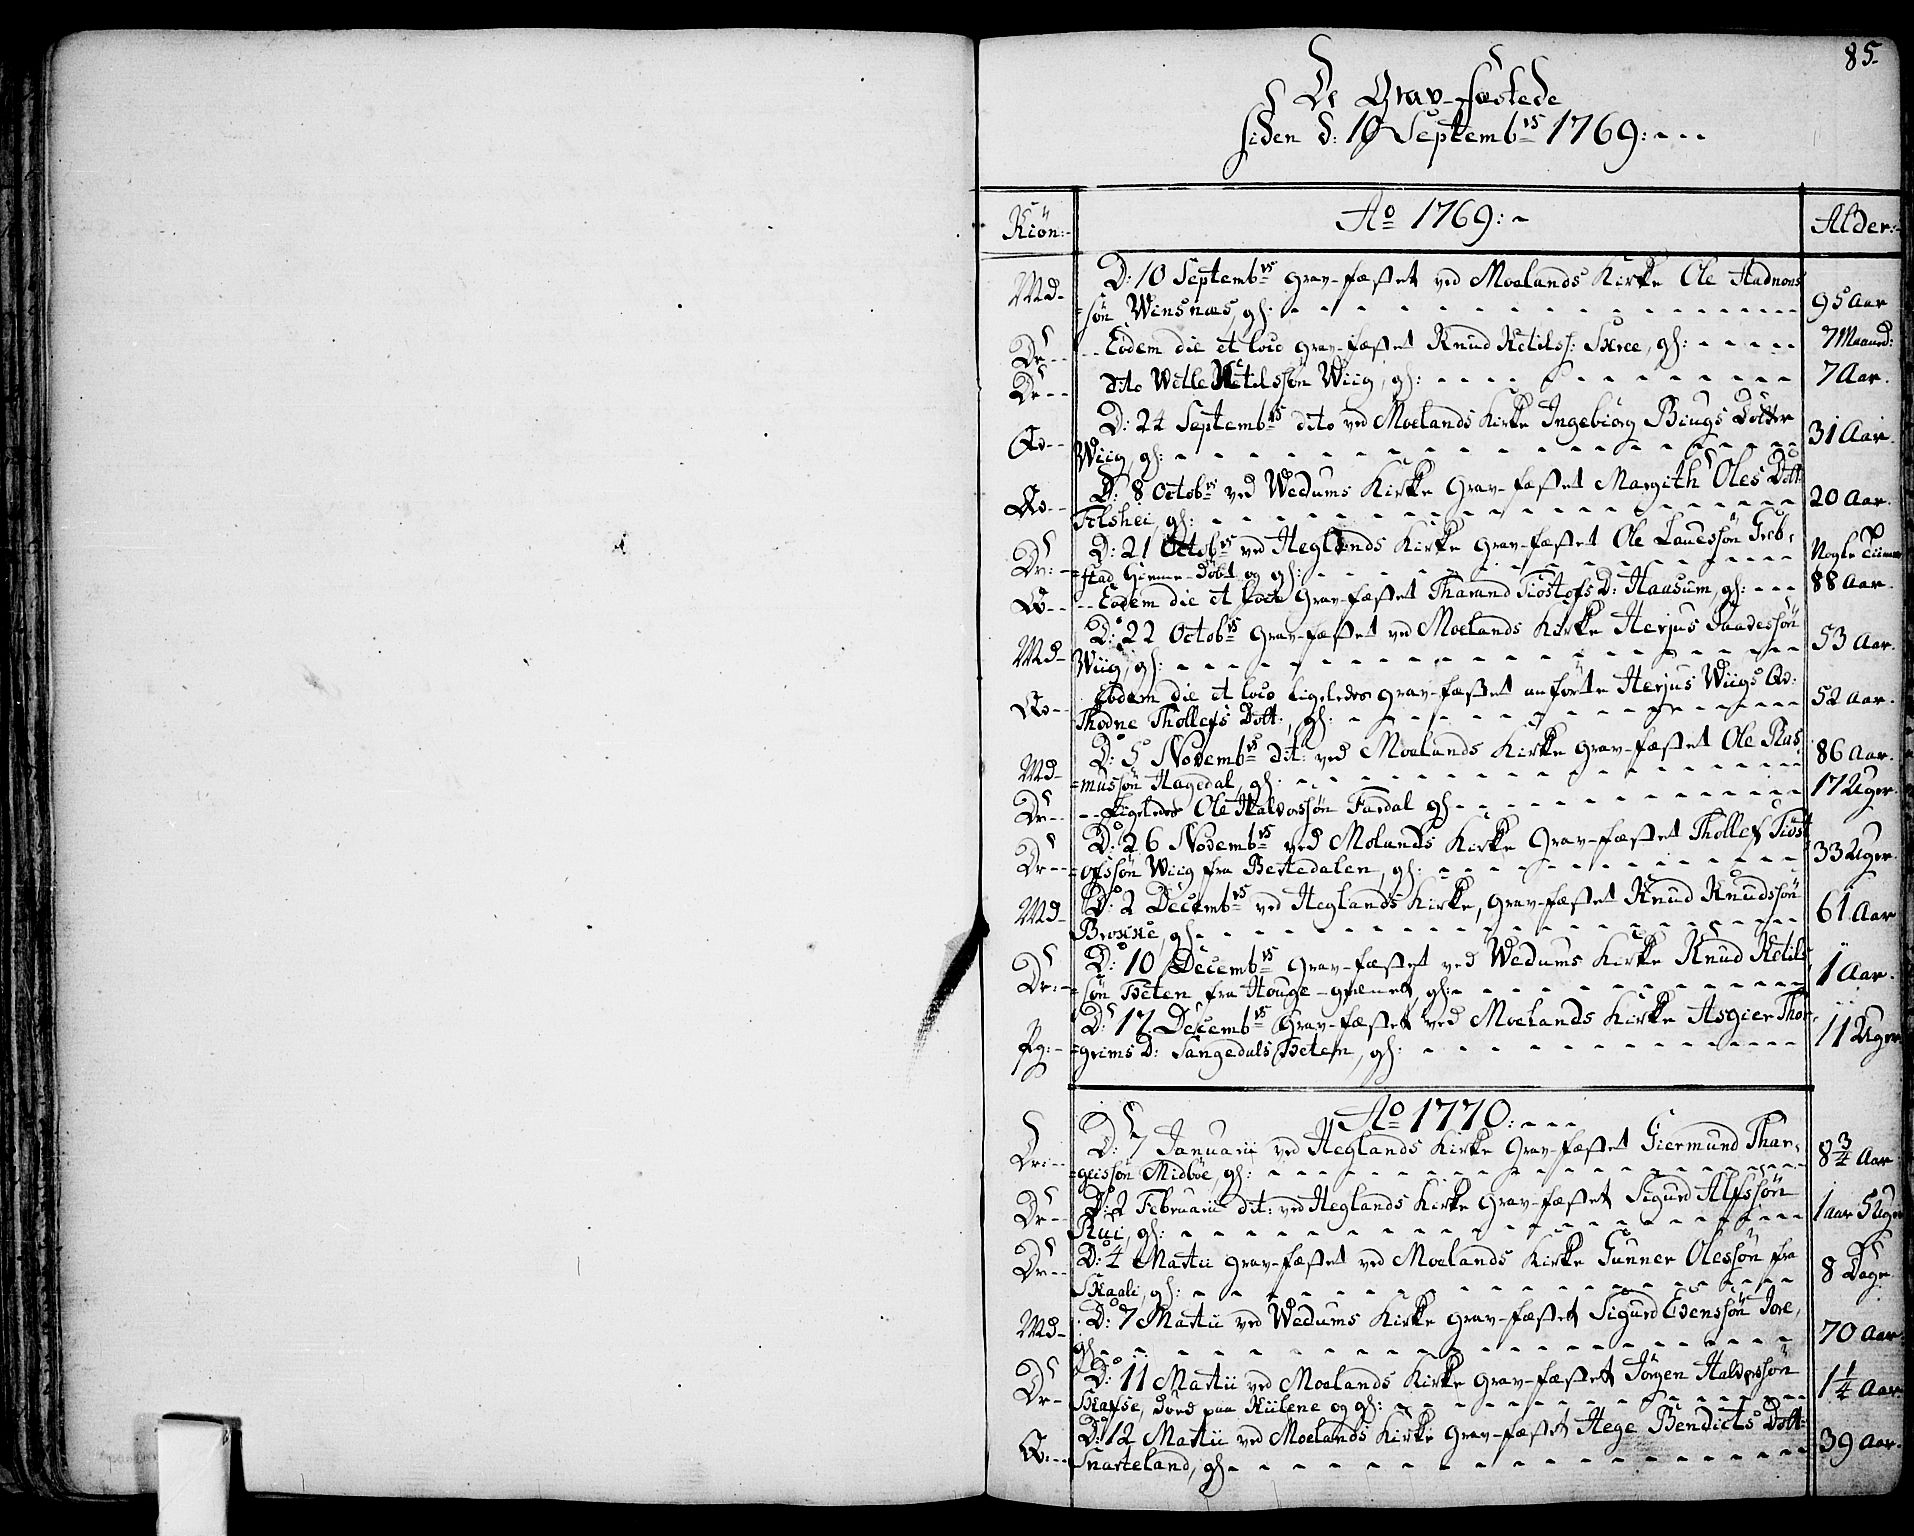 85.
De Grav-fæstede
siden d: 10 Septemb<sup>rs</sup> 1769:---
Kiön:-
A<sup>o</sup> 1769:-
Alder:-
Md- D: 10 Septemb<sup>rs</sup> Grav-fæstet ved Moelands Kirke Ole Aadnons
=søn Winsnæs, gl: - - - 95 Aar
Dr-- --Eodem die et loco Grav-fæstet Knud Ketilss: Skree, gl: - - - 7 Maaned:
Dr-- dito Wetle Ketilssøn Wiig, gl: - - - 7 Aar.
Qv-- D: 24 Septemb<sup>rs</sup> dito ved Moelands Kirke Ingebiörg Biugs Dotter
Wiig, gl: - - - 31 Aar.
Qv-- D: 8 Octob<sup>rs</sup> ved Wedums Kirke Grav-fæstet Margith Oles Dott:
Felshei, gl: - - - 20 Aar.
Dr:- D: 21 Octob<sup>rs</sup> ved Heglands Kirke Grav-fæstet Ole Lauessøn
=stad Hjemme-Döbt og gl: - - - Nogle Tiimer
Qv-- --Eodem die et loco Grav-fæstet Tharand Tiostofs D: Haasum, gl: --- 88 Aar.
Md- D: 22 Octob<sup>rs</sup> Grav-fæstet ved Moelands Kirke Herjus Saadessön
Wiig, gl: - - - 53 Aar.
Qv-- Eodem die et loco ligeledes Grav-fæstet anförte Herjus Wiigs Qv:
Thodne Thollefs Dott:, gl: - - - 52 Aar.
Md- D: 5 Novemb<sup>rs</sup> dit: ved Moelands Kirke Grav-fæstet Ole Ras
=mussön Hagedal, gl: - - - 86 Aar.
Dr-- --Ligeledes Ole Halvorssön Fardal gl - - - 17 Uger
Dr-- D: 26 Novemb<sup>rs</sup> ved Molands Kirke Grav-fæstet Thollef Tiost
=ofssön Wiig fra Bestedalen, gl: - - - 33 Uger.
Md- D: 2 Decemb<sup>rs</sup> ved Heglands Kirke, Grav-fæstet Knud Knudssön
Brokke, gl - - - 61 Aar
Dr:- D: 10 Decemb<sup>rs</sup> Grav-fæstet ved Wedums Kirke Knud Ketils
=sön Tveten fra Houge-grænd, gl: - - - 1 Aar.
Pg:- D: 17 Decemb<sup>rs</sup> Grav-fæstet ved Moelands Kirke Asgier Thor-
=grims D: Sangedals Tveten, gl: - - - 11 Uger
A<sup>o</sup> 1770:---
Dr:-- D: 7 Januarii ved Heglands Kirke Grav-fæstet Giermund Thar-
=geissön Midböe, gl: - - - 8 3/4 Aar
Dr-- D: 2 Februarii dit: ved Heglands Kirke Grav-fæstet Sigurd Alfssön
Rui, gl: - - - 1 aar 5 Uger
Dr-- D: 4 Martii Grav-fæstet ved Moelands Kirke Gunner Olessön fra
Skaali, gl: - - - 8 Dage
Md- D: 7 Martii ved Wedums Kirke Grav-fæstet Sigurd Evenssön Jore,
gl - - - 70 Aar.
Dr- D: 11 Martii ved Moelands Kirke Grav-fæstet Jörgen Halvorssön
Skafse, döed paa Kiilene og gl: - - - 1 1/4 Aar
Qv:-- D: 12 Martii ved Moelands Kirke Grav-fæstet Hege Bendicts Dott:
Snarteland, gl - - - 39 Aar.